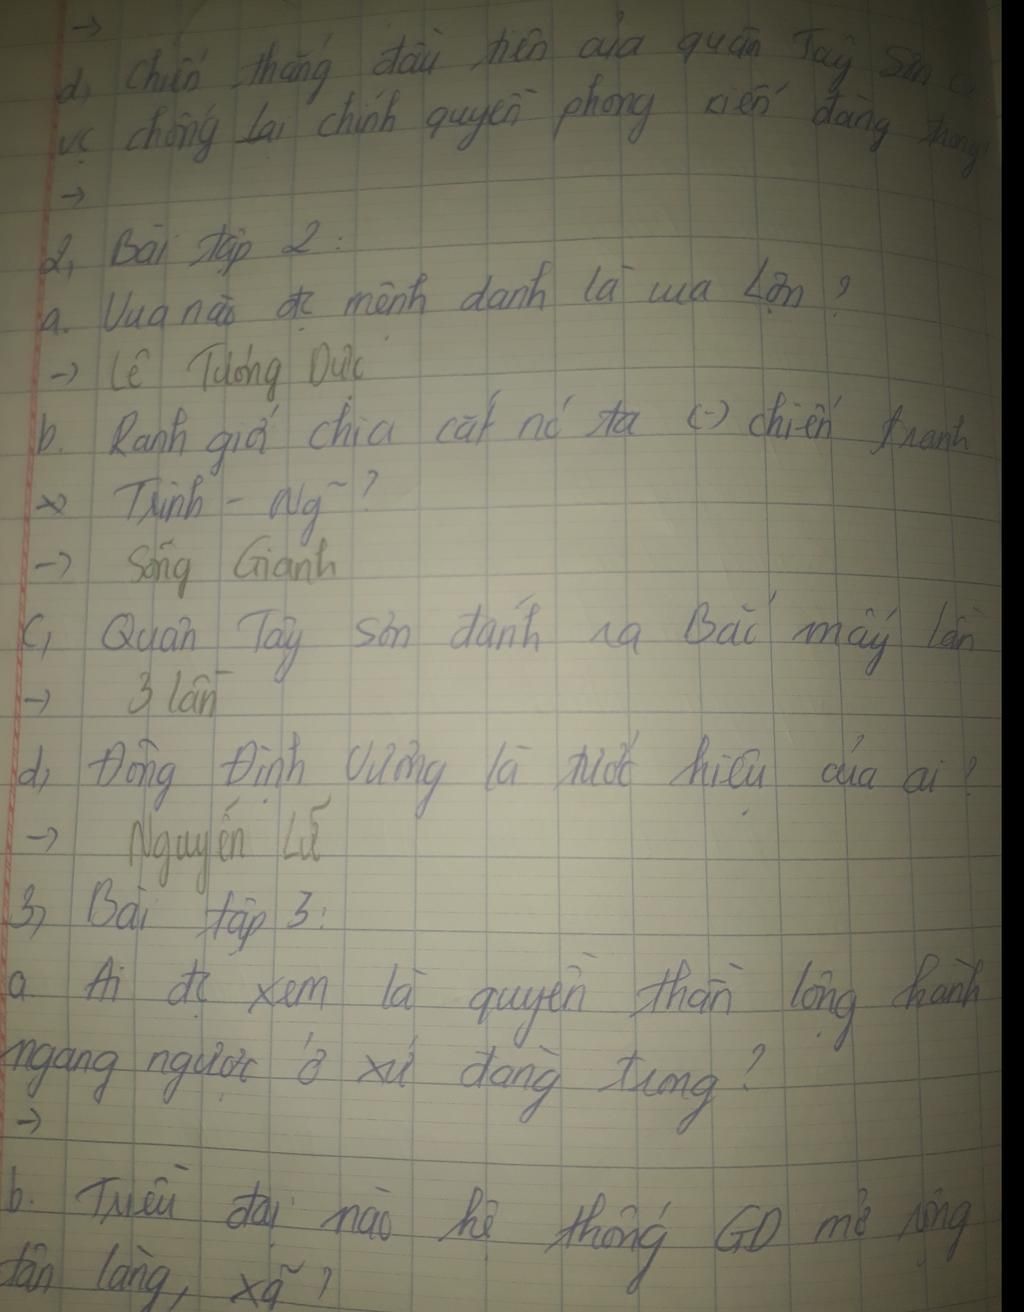 →
d, Chiến thắng đầu tiên của quân Tây Sơn
vc chống lại chính quyền phong kiến đàng trong
→
2, Bài tập 2:
a. Vua nào đc mệnh danh là vua Lợn?
→ Lê Tương Dực
b. Ranh giới chia cắt nc ta (-) chiến tranh
Trịnh - Ng~?
→ Sông Gianh
c, Quân Tây sơn đánh ra Bắc mấy lần
→ 3 lần
d, Đông Định Vương là tước hiệu của ai?
→ Nguyễn Lữ
3, Bài tập 3:
a. Ai đc xem là quyền thần lộng hành
ngang ngược ở xứ đàng trong?
→
b. Triều đại nào hệ thống GD mở rộng
tận làng, xã?